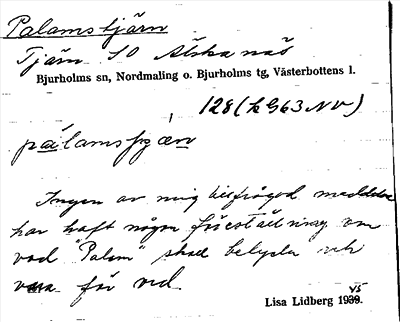 Palamstjärn
Tjärn SO Älskanäs
Bjurholms sn, Nordmaling o. Bjurholms tg, Västerbottens l.
128 (k G63 NV)
pàlams
Ingen av mig tillfrågad meddelare
har haft någon föreställning om
vad "Palam" skall betyda och
vara för ord.
Lisa Lidberg 1945